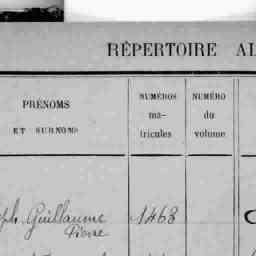 RÉPERTOIRE AL
PRÉNOMS
ET SURNOMS
NUMÉROS
ma-
tricules
NUMÉRO
du
volume
ph Guillaume
Pierre
1468